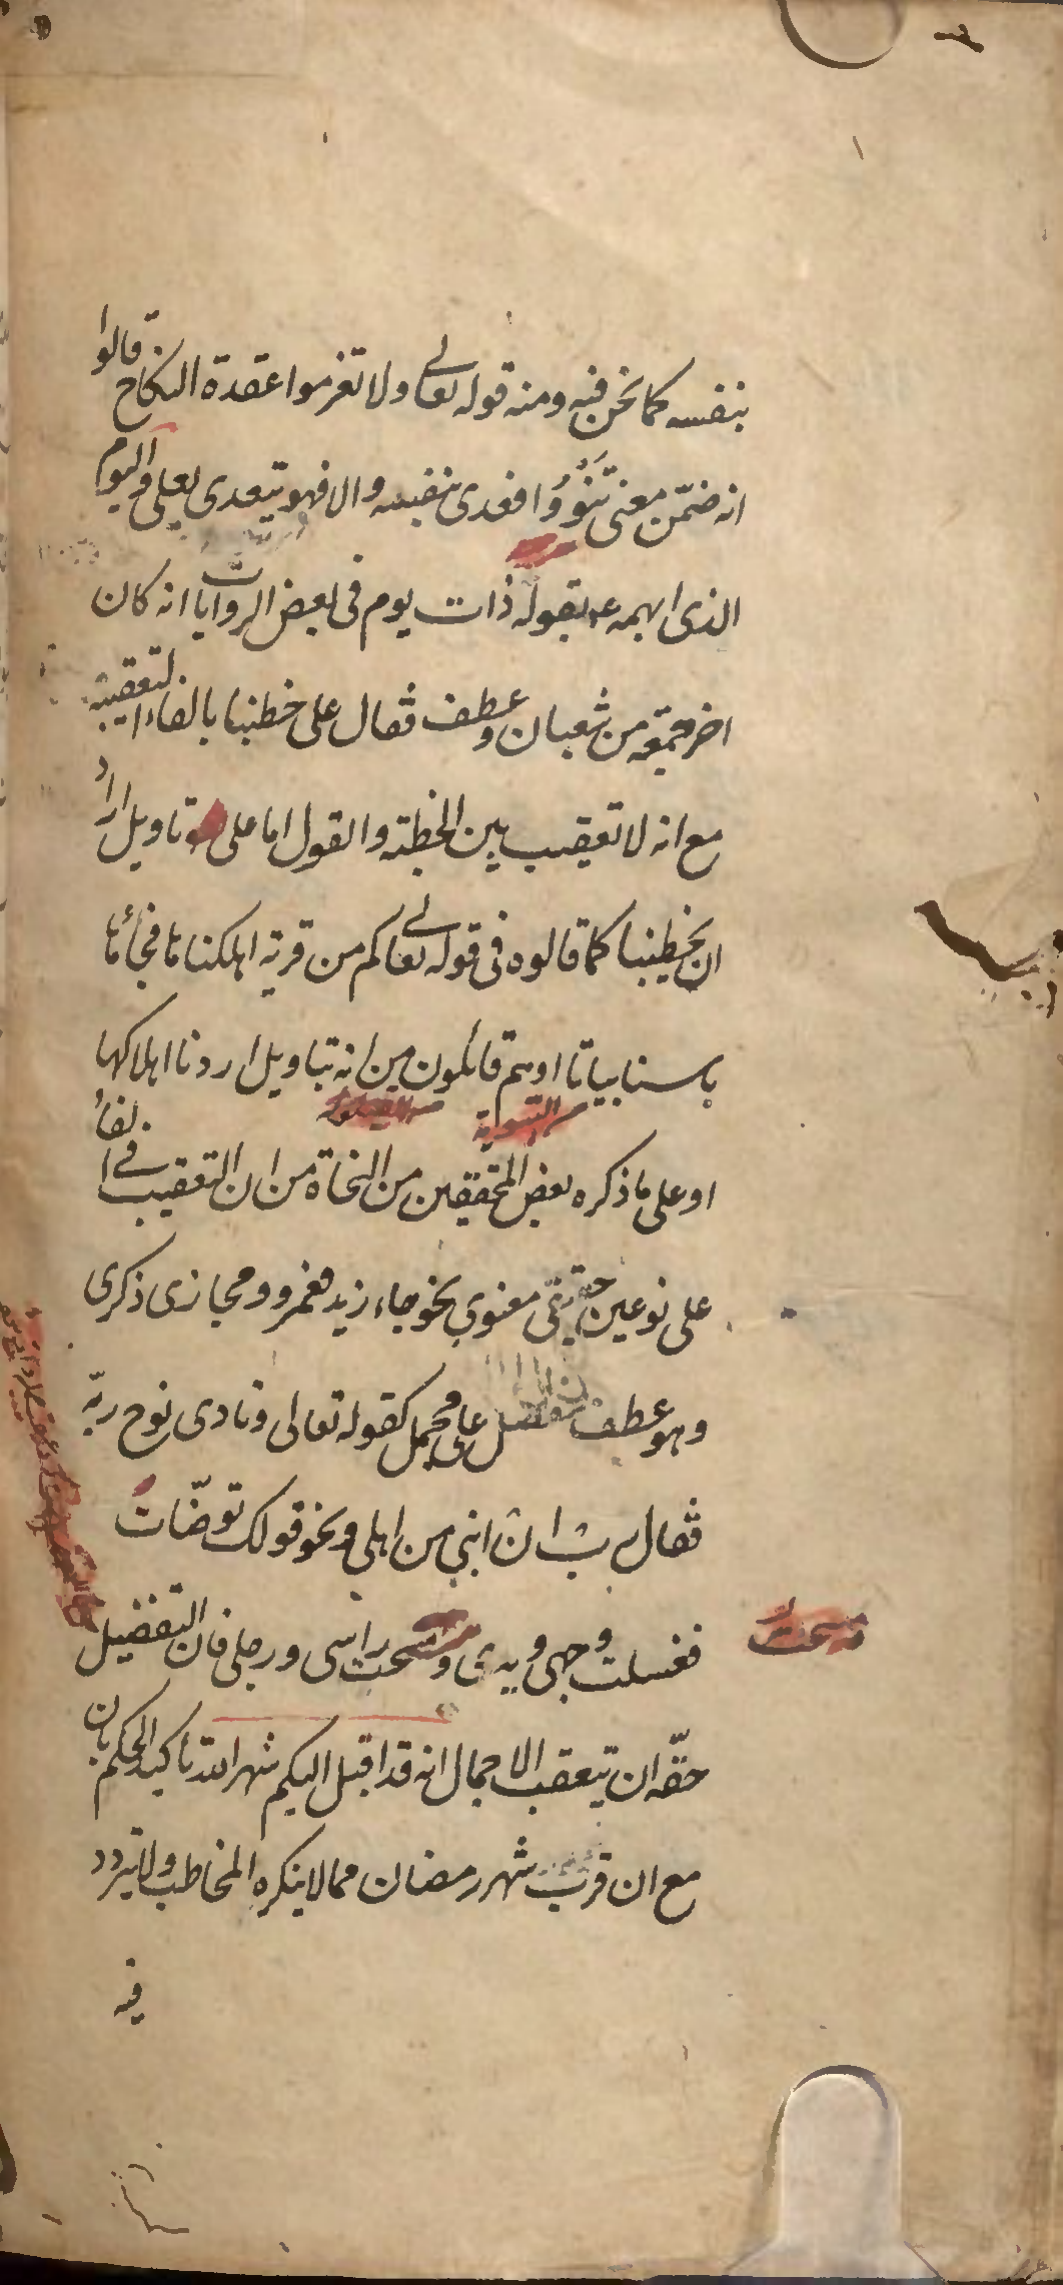 بنفسه كما نحن فيه ومنه قوله تعالى ولا تعزموا عقدة النكاح قالوا
انه ضمّن معنى تَنْوُوا فعدى بنفسه والا فهو يتعدى بعلى واليوم
الذى ابهمه ع بقوله ذات يوم فى بعض الروايات انه كان
اخر جمعة من شعبان وعطف فقال على خطبنا بالفاء التعقيبية
مع انه لا تعقيب بين الخطبة والقول اما على تاويل اراد
ان يخطبنا كما قالوه فى قوله تعالى كم من قرية اهلكناها فجأها
باسنا بياتا او هم قائلون من انه بتاويل اردنا اهلاكها
او على ما ذكره بعض المحققين من النحاة من ان التعقيب فى الفاء
على نوعين حقيقى معنوى نحو جاء زيد فعمرو ومجازى ذكرى
وهو عطف مفصل على مجمل كقوله تعالى ونادى نوح ربّه
فقال رب ان ابنى من اهلى ونحو قولك توضّات
فغسلت وجهى ويدى ومسحت راسى ورجلى فان التفضيل
حقّه ان يتعقب الاجمال انه قد اقبل اليكم شهر الله تاكيد الحكم بان
مع ان قرب شهر رمضان مما لا ينكره المخاطب ولا يتردد
فيه